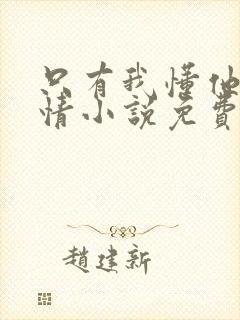 只有我懂他
情小說免費
趙建新